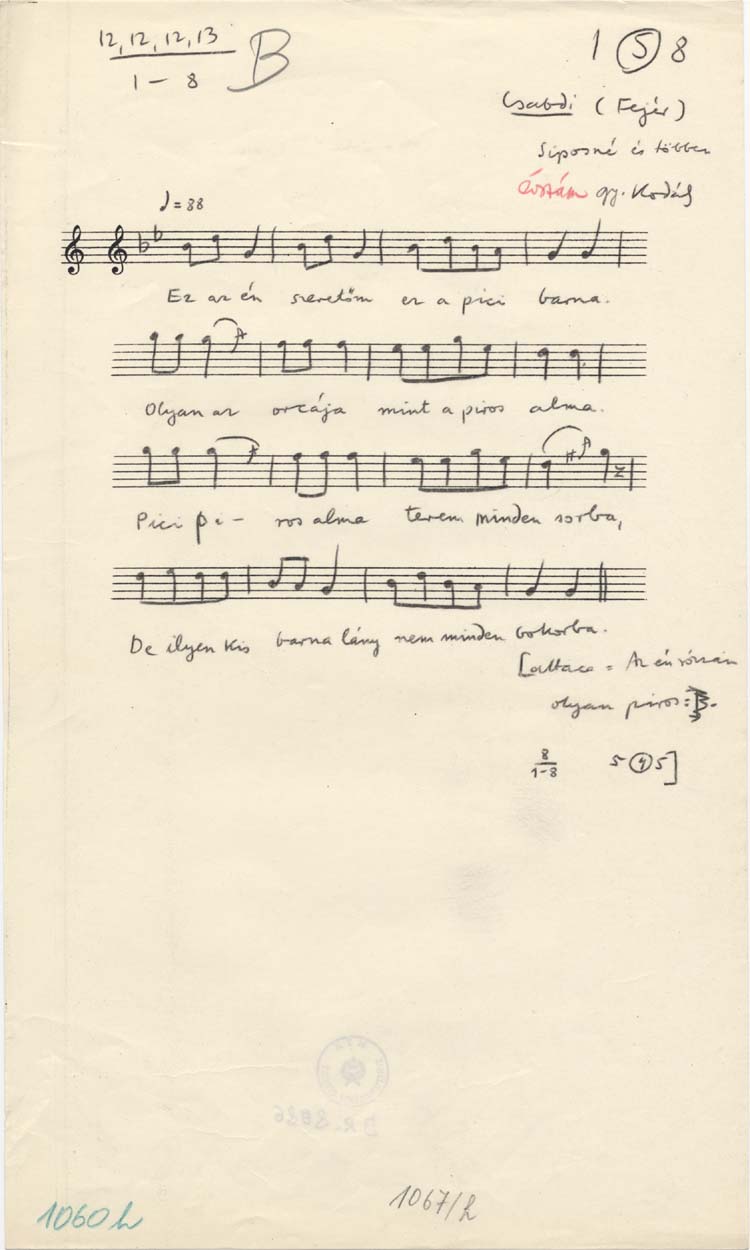 12, 12, 12, 13
1 – 8
B
1 (5) 8
Csabdi (Fejér)
Siposné és többen
gy. Kodály
♩ = 88
Ez az én szeretőm ez a pici barna.
Olyan az orcája mint a piros alma.
Pici pi – ros alma terem minden sorba,
De ilyen kis barna lány nem minden bokorba.
[Az én rózsám
olyan piros =
8
1–8
5 (4) 5]
B.R. 8026
1060 h
1067/h